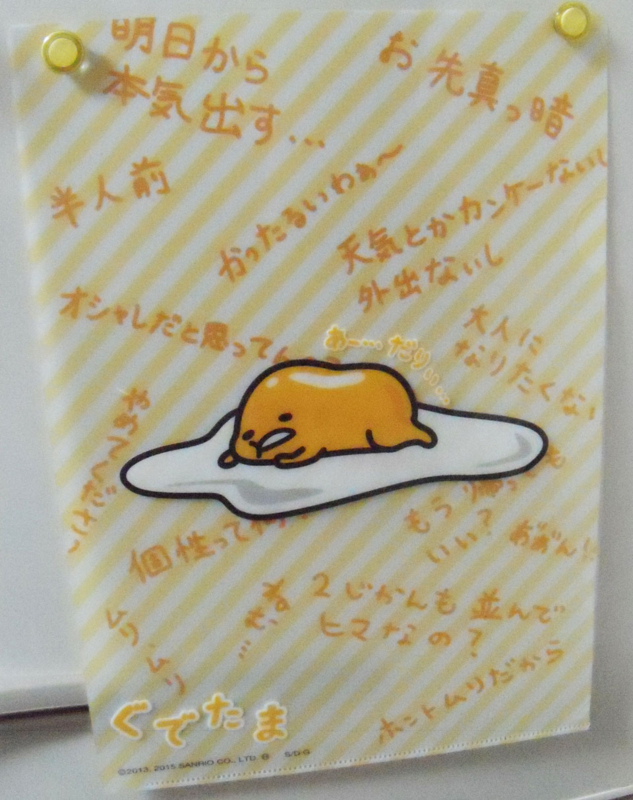 明日から
本気出す…
お先真っ暗
半人前
かったるいわぁ〜
天気とかカンケーないし
外出ないし
オシャレだと思ってん
大人に
なりたくない
あー…だりぃ…
やめてくださ〜
個性って何
もう帰っても
いい?
ムリ、ムリ
2じかんも並んで
ヒマなの?
ホントムリだから
ぐでたま
©2013, 2015 SANRIO CO., LTD. Ⓛ S/D·G